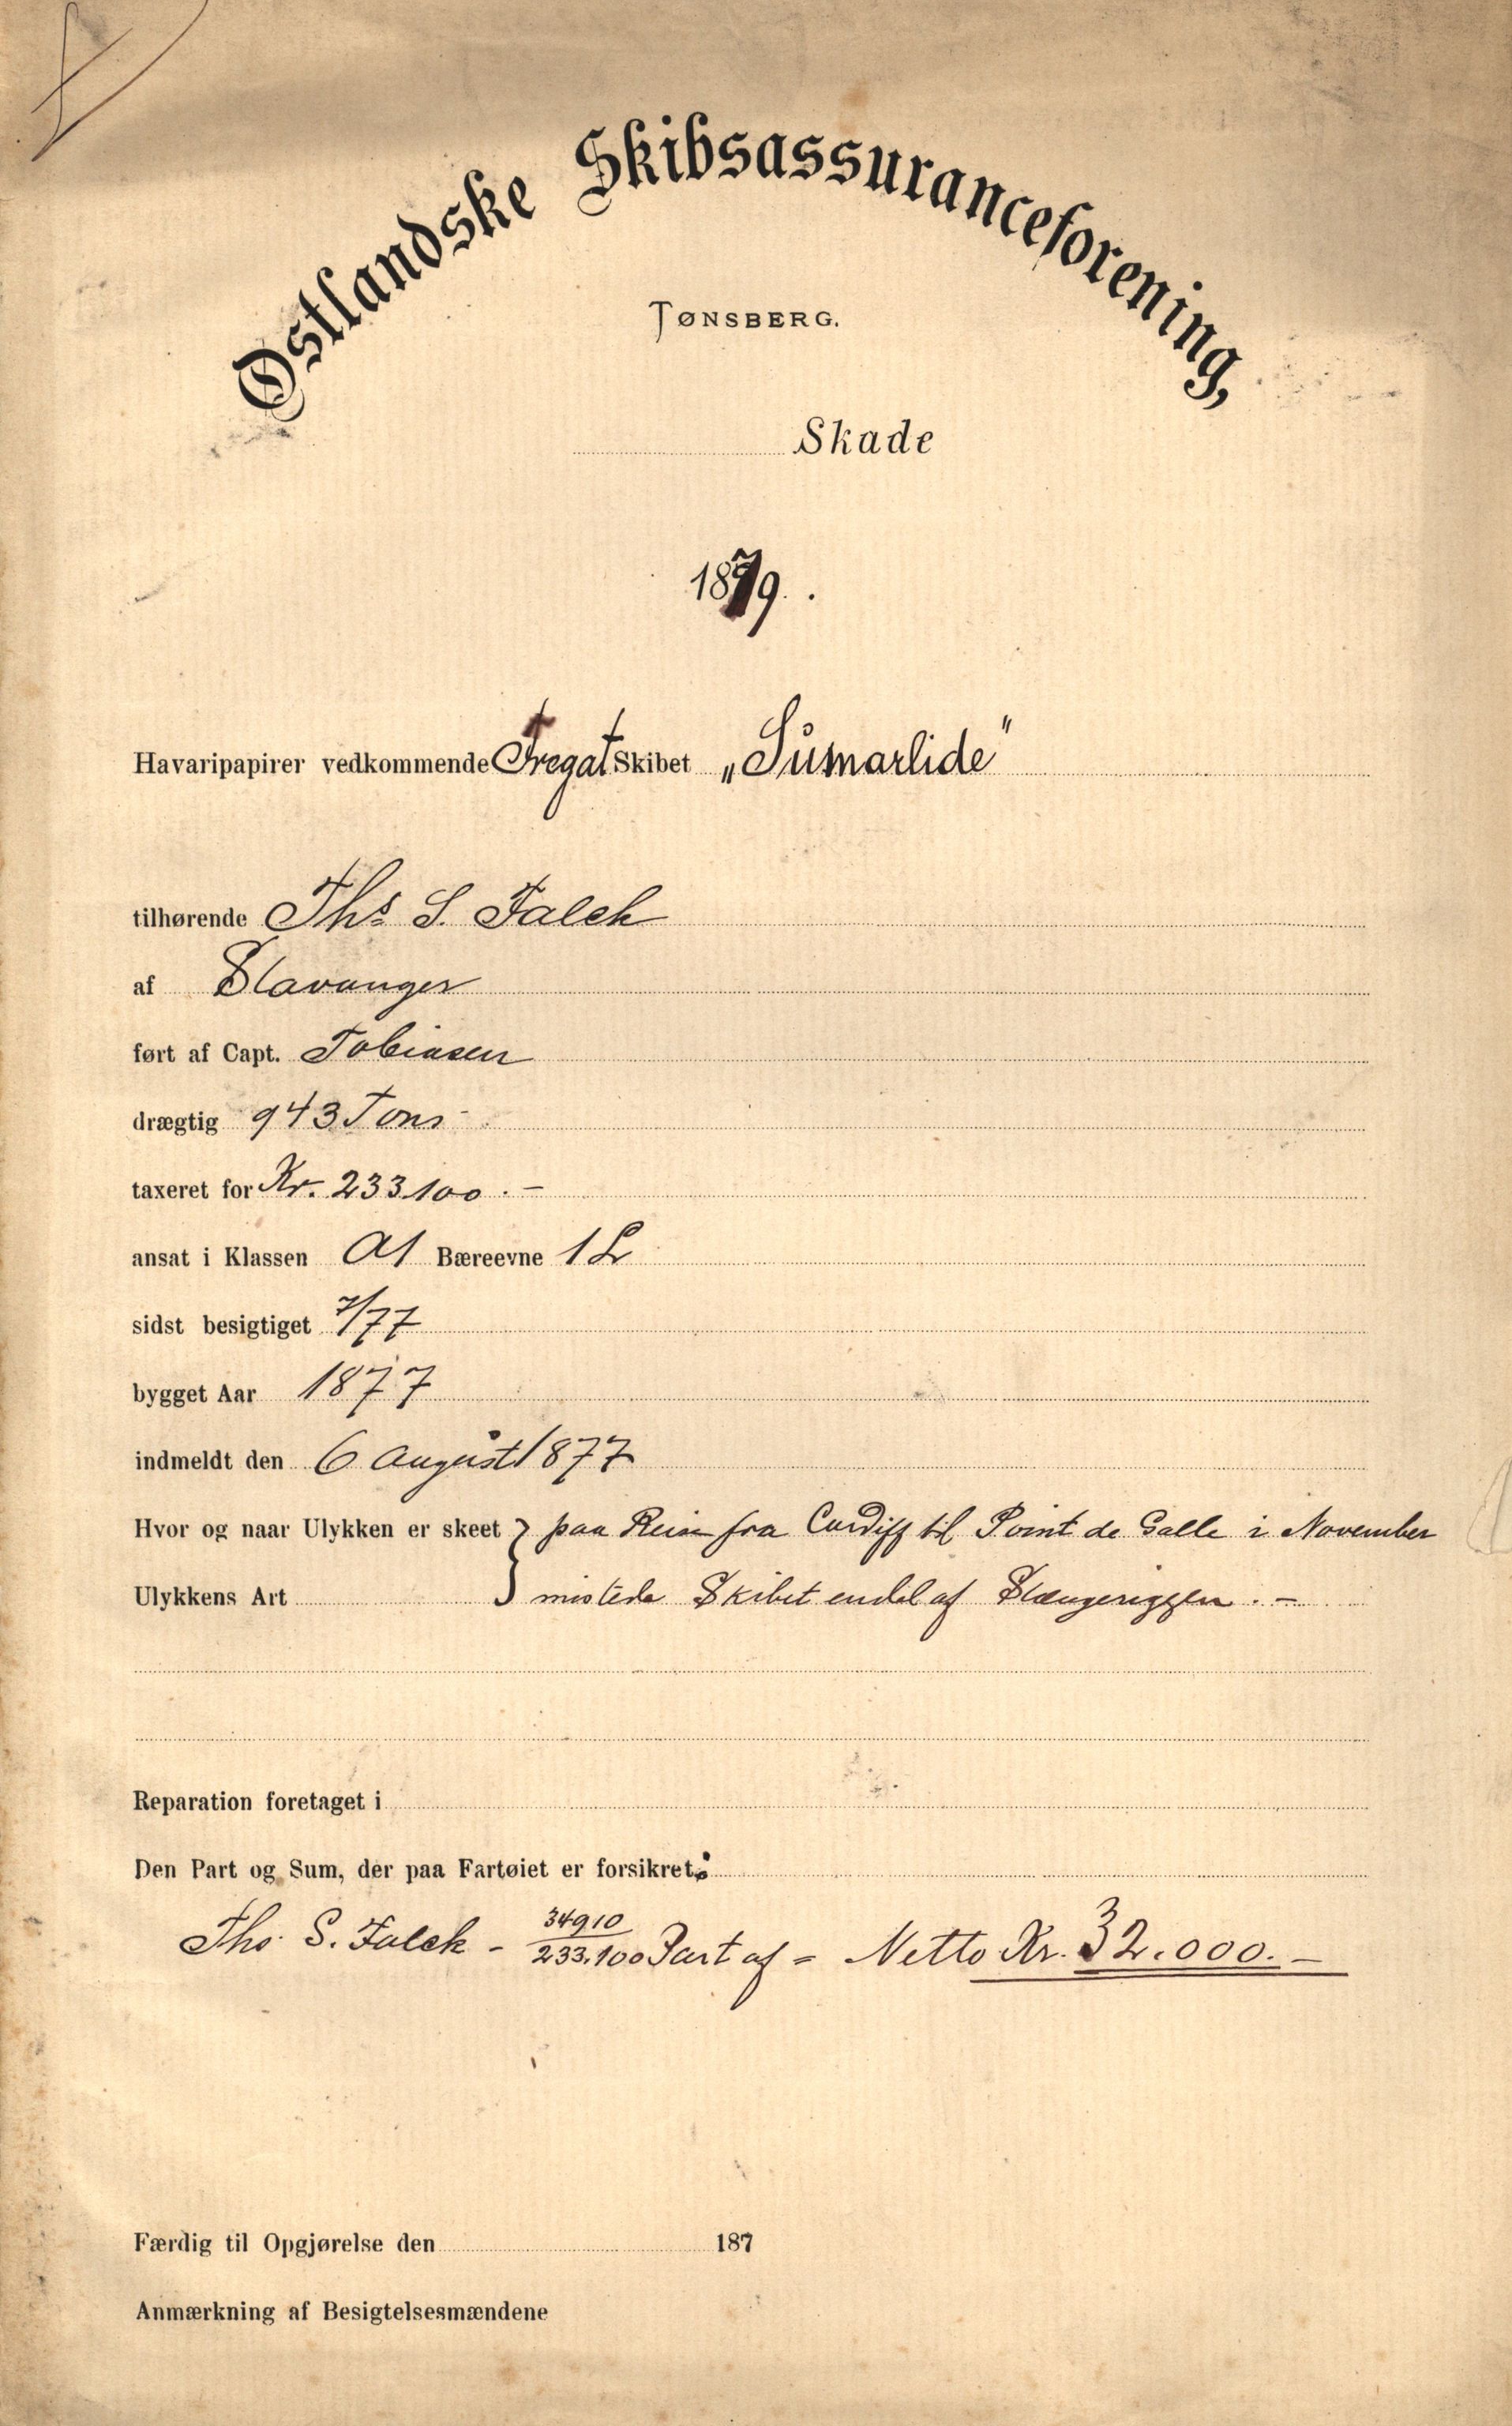 Østlandske Skibsassuranceforening,
TØNSBERG.
Skade
1879.
Havaripapirer vedkommende Fregat Skibet „Sumarlide"
tilhørende Ths S. Falck
af Stavanger
ført af Capt. Tobiasen
drægtig 943 Tons
taxeret for Kr. 233100.-
ansat i Klassen A1 Bæreevne 1 L
sidst besigtiget 7/77
bygget Aar 1877
indmeldt den 6 August 1877
Hvor og naar Ulykken er skeet } paa Reise fra Cardiff til Point de Galle i November
Ulykkens Art } mistede Skibet endel af Stængeriggen.-
Reparation foretaget i
Den Part og Sum, der paa Fartøiet er forsikret:
Ths. S. Falck - 34910/233.100 Part af = Netto Kr. 32.000.-
Færdig til Opgjørelse den 187
Anmærkning af Besigtelsesmændene